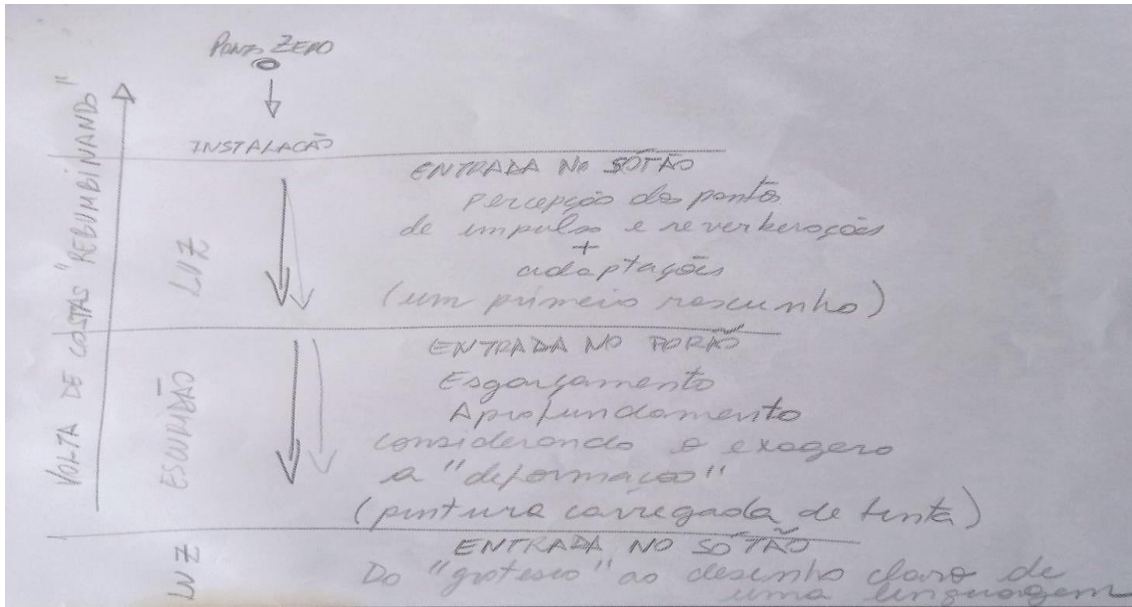 PONTO ZERO
INSTALAÇÃO
VOLTA DE COSTAS "REBUMBINANDO"
LUZ
ENTRADA NO SÓTÃO
Percepção dos pontos
de impulso e reverberações
+
adaptações
(um primeiro rascunho)
ESCURIDÃO
ENTRADA NO PORÃO
Esgarçamento
Aprofundamento
considerando o exagero
a "deformação"
(pintura carregada de tinta)
LUZ
ENTRADA NO SÓTÃO
Do "grotesco" ao desenho claro de
uma linguagem